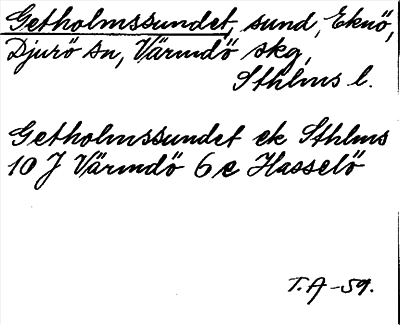 Getholmssundet, sund, Eknö,
Djurö sn, Värmdö skg,
Sthlms l.
Getholmssundet ek Sthlms
10 J Värmdö 6 e Hasselö
T.A-59.